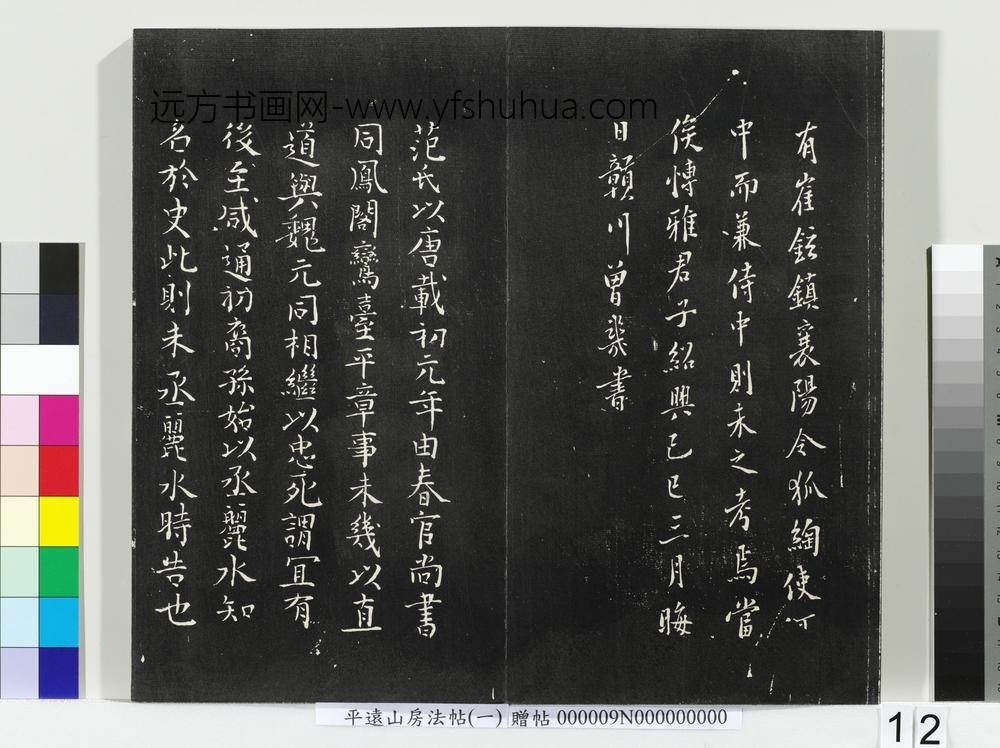 远方书画网-www.yfshuhua.com
有崔鉉鎮襄陽令狐綯使河
中而兼侍中則未之考焉當
俟博雅君子紹興己巳三月晦
日贛川曾幾書
范氏以唐載初元年由春官尚書
同鳳閣鸞臺平章事未幾以直
道與魏元同相繼以忠死謂宜有
後至咸通初裔孫始以丞麗水知
名於史此則未丞麗水時告也
平遠山房法帖(一) 贈帖 000009N000000000
12